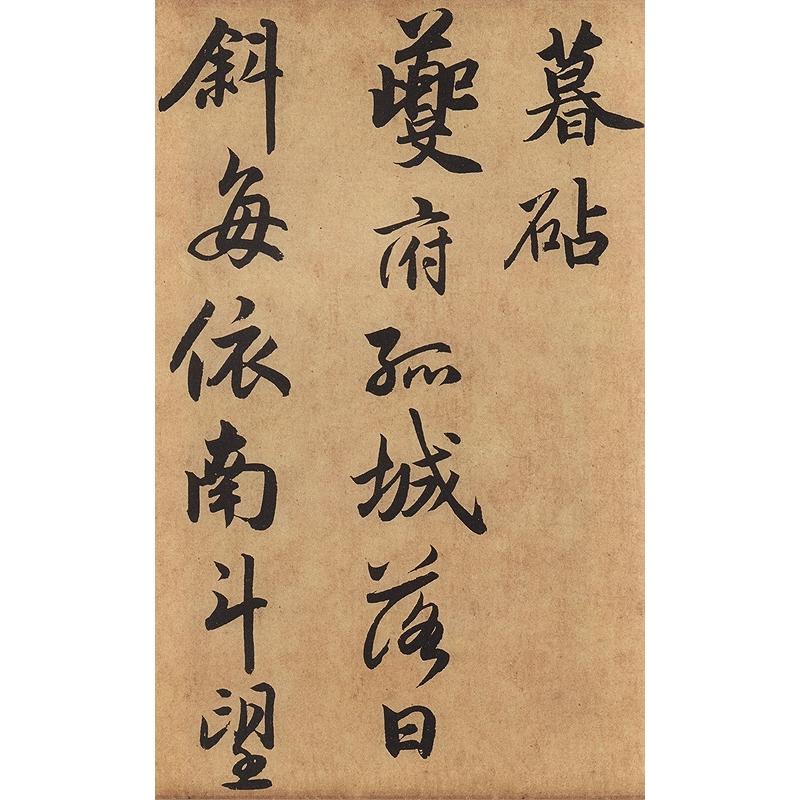 暮砧
夔府孤城落日
斜每依南斗望